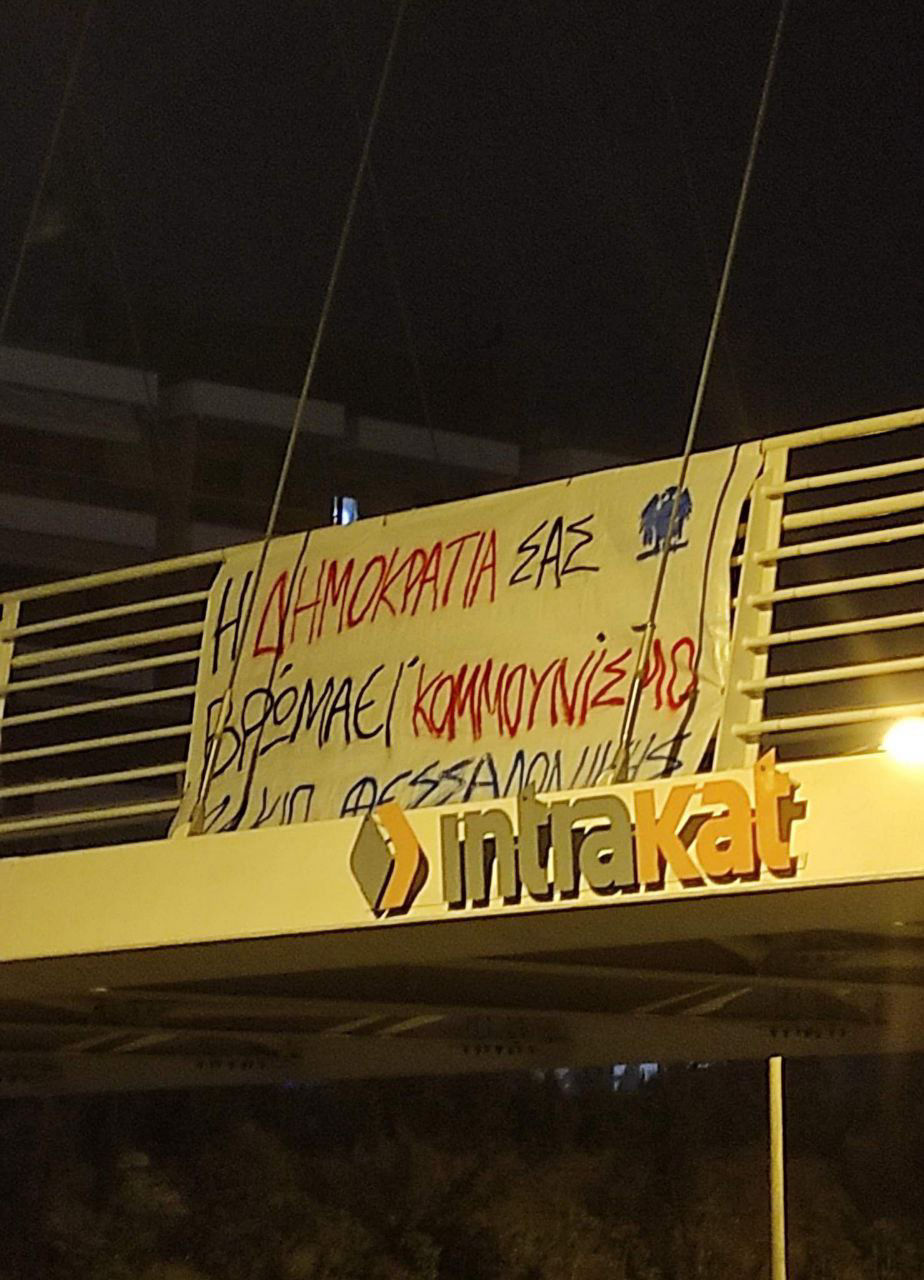 Η ΔΗΜΟΚΡΑΤΙΑ ΣΑΣ
ΒΡΩΜΑΕΙ ΚΟΜΜΟΥΝΙΣΜΟ
ΘΕΣΣΑΛΟΝΙΚΗΣ
intrakat